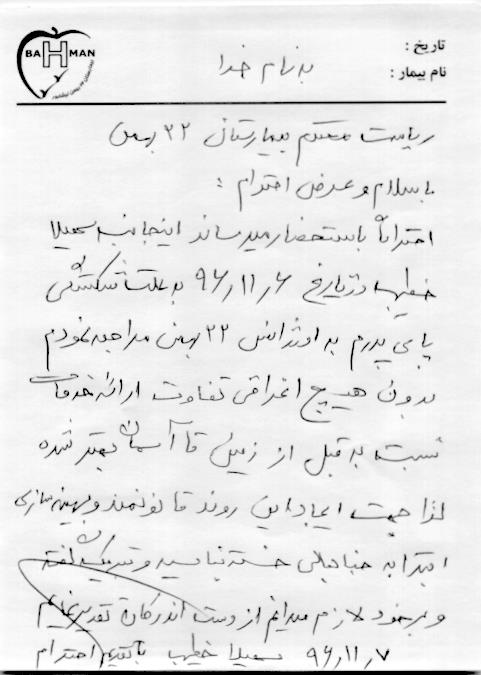 BAHMAN
تاریخ :
نام بیمار :
به نام خدا
ریاست محترم بیمارستان ۲۲ بهمن
با سلام و عرض احترام :
احتراماً باستحضار میرساند اینجانب سهیلا
خطیب در تاریخ ۹۶٫۱۱٫۶ به علت شکستگی
پای پدرم به اورژانس ۲۲ بهمن مراجعه نمودم
بدون هیچ اغراقی تفاوت ارائه خدمات
نسبت به قبل از زمین تا آسمان بهتر شده
لذا جهت ایجاد این روند قانونمند و بهینه سازی
ابتدا به جنابعالی خسته نباشید و تبریک گفته
و بر خود لازم میدانم از دست اندرکاران تقدیر نمایم
با تقدیم احترام سهیلا خطیب ۹۶٫۱۱٫۷